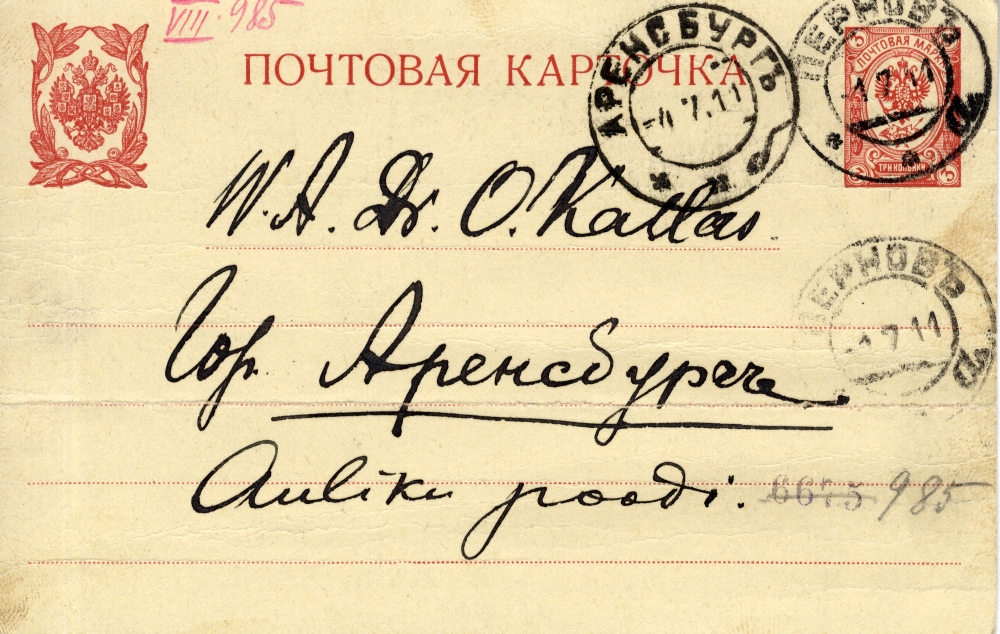 VIII. 985
ПОЧТОВАЯ КАРТОЧКА
АРЕНСБУРГЪ
-4.7.11
ПЕРНОВЪ
-1.7.11
а
ПОЧТОВАЯ МАРКА
ТРИ КОПѢЙКИ
3 3
W. A. Dr. O. Kallas
ПЕРНОВЪ
-1.7.11
Гор. Аренсбургъ
Auliku poodi. 6675 985